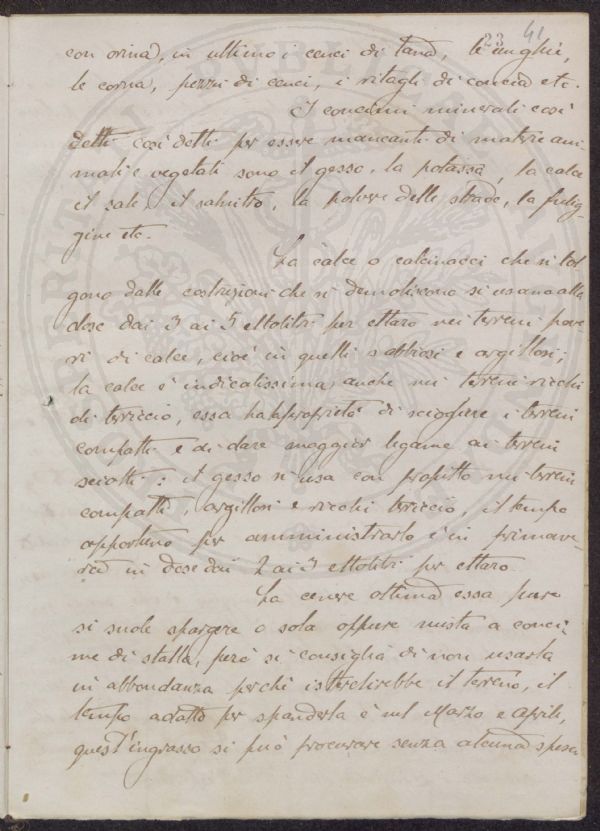 23 41
con orina, in ultimo i cenci di lana, le unghie,
le corna, pezzi di cenci, i ritagli di concia etc.
I concimi minerali così
detti così detti per essere mancanti di materie ani
mali e vegetali sono il gesso, la potassa, la calce
il sale, il salnitro, la polvere delle strade, la fulig-
gine etc.
La calce o calcinacci che si tol
gono dalle costruzioni che si demoliscono si usano alla
dose dai 3 ai 5 ettolitri per ettaro nei terreni pove
ri di calce, cioè in quelli sabbiosi e argillosi;
la calce è indicatissima anche nei terreni ricchi
di terriccio, essa ha proprietà di sciogliere i terreni
compatti e di dare maggior legame ai terreni
sciolti: il gesso si usa con profitto nei terreni
compatti, argillosi e ricchi terriccio, il tempo
opportuno per amministrarlo è in primave-
ra in dose dai 2 ai 3 ettolitri per ettaro.
La cenere ottima essa pure
si suole spargere o sola oppure mista a conci-
me di stalla, però si consiglia di non usarla
in abbondanza perchè isterilirebbe il terreno, il
tempo adatto per spanderla è nel Marzo e Aprile,
quest'ingrasso si può procurare senza alcuna spesa